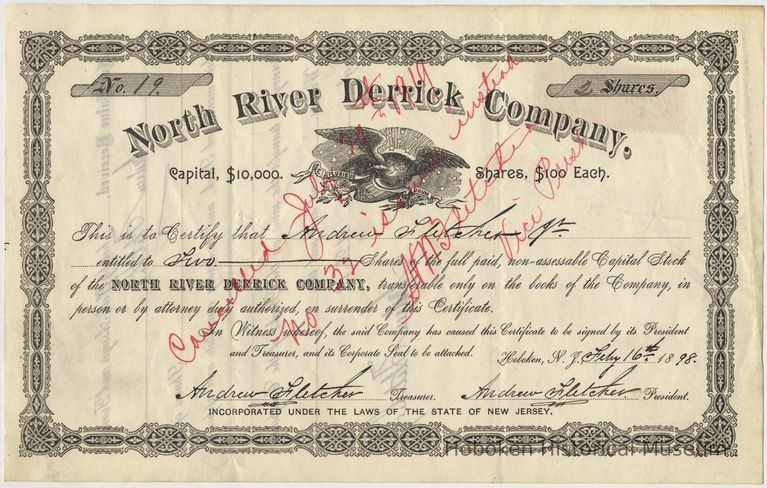 No. 19.
2 Shares.
North River Derrick Company.
Capital, $10,000.
Shares, $100 Each.
This is to Certify that Andrew Fletcher Jr.
entitled to Two Shares of the full paid, non-assessable Capital Stock
of the NORTH RIVER DERRICK COMPANY, transferable only on the books of the Company, in
person or by attorney duly authorized, on surrender of this Certificate.
In Witness whereof, the said Company has caused this Certificate to be signed by its President
and Treasurer, and its Corporate Seal to be attached.
Hoboken, N. J. Feby 16th 1898.
Andrew Fletcher Treasurer. Andrew Fletcher President.
INCORPORATED UNDER THE LAWS OF THE STATE OF NEW JERSEY.
Cancelled July 1919
No 32 issued instead
Fletcher
Vice Prest
Hoboken Historical Museum